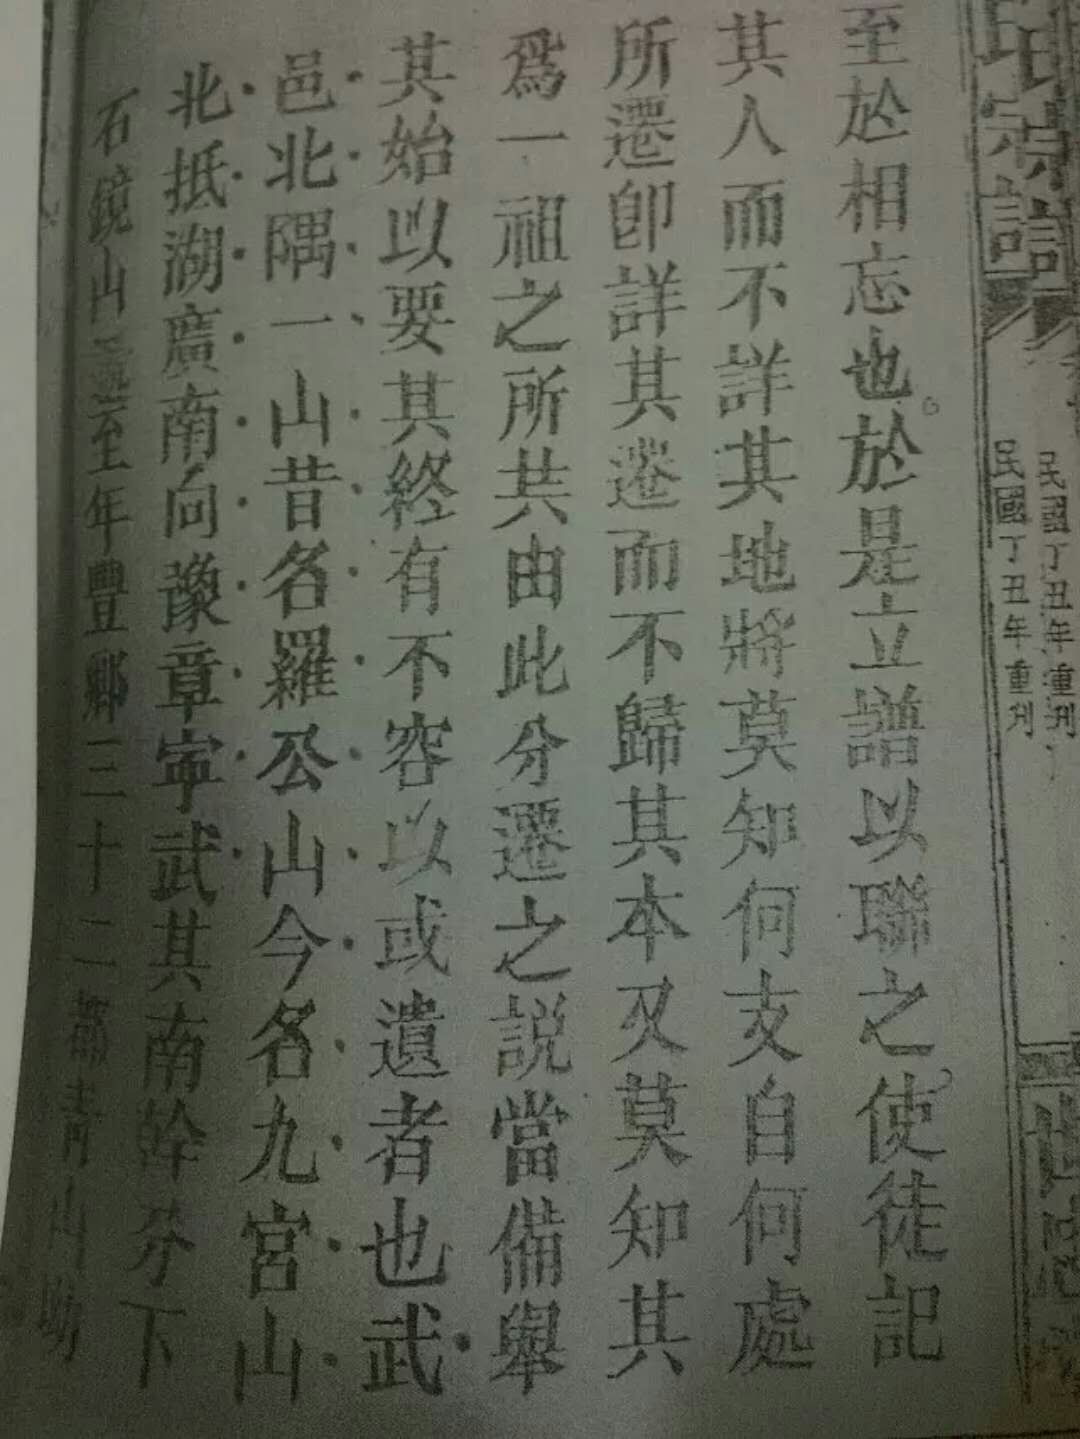 民國丁丑年重刊
民國丁丑年重刊
至於相忘也於是立譜以聯之使徒記
其人而不詳其地將莫知何支自何處
所遷卽詳其遷而不歸其本又莫知其
爲一祖之所共由此分遷之説當備舉
其始以要其終有不容以或遺者也武
邑北隅一山昔名羅公山今名九宮山
北抵湖廣南向豫章寕武其南幹分下
石鏡山至年豐鄉三十二都青山坳